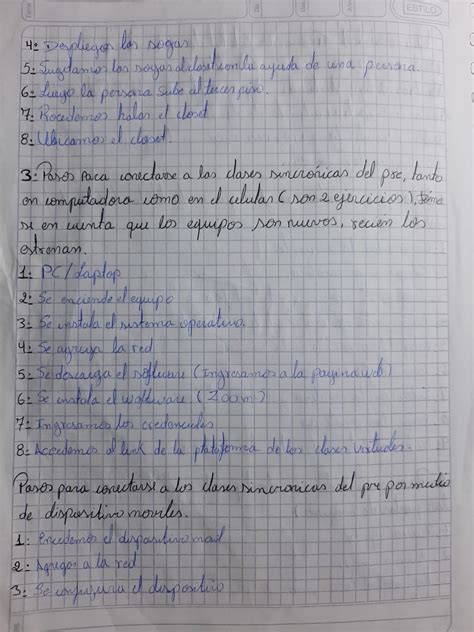 ESTILO
4: Despliegos los sogas
5: Sugetamos las sogas al closet con la ayuda de una persona.
6: Luego la persona sube al tercer piso.
7: Procedemos halar el closet
8: Ubicamos el closet.
3: Pasos para conectarse a las clases sincrónicas del pre, tanto
en computadora como en el celular (son 2 ejercicios), tome
se en cuenta que los equipos son nuevos, recien los
estrenan.
1: PC/Laptop
2: Se enciende el equipo
3: Se instala el sistema operativo.
4: Se agrega la red
5: Se descarga el software (Ingresamos a la pagina web)
6: Se instala el software (Zoom)
7: Ingresamos los credenciales
8: Accedemos al link de la plataforma de las clases virtuales.
Pasos para conectarse a los clases sincronicas del pre por medio
de dispositivo moviles.
1: Encedemos el dispositivo movil
2: Agregos a la red
3: Se configura el dispositivo